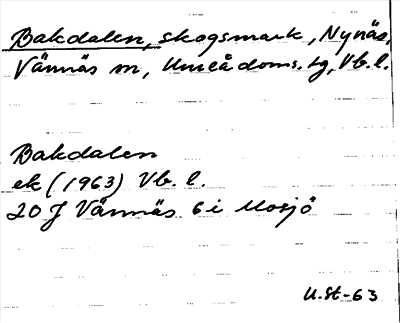 Bakdalen, skogsmark, Nynäs,
Vännäs sn, Umeå doms. tg, Vb. l.
Bakdalen
ek (1963) Vb. l.
20 J Vännäs 6 i Mosjö
U.St-63